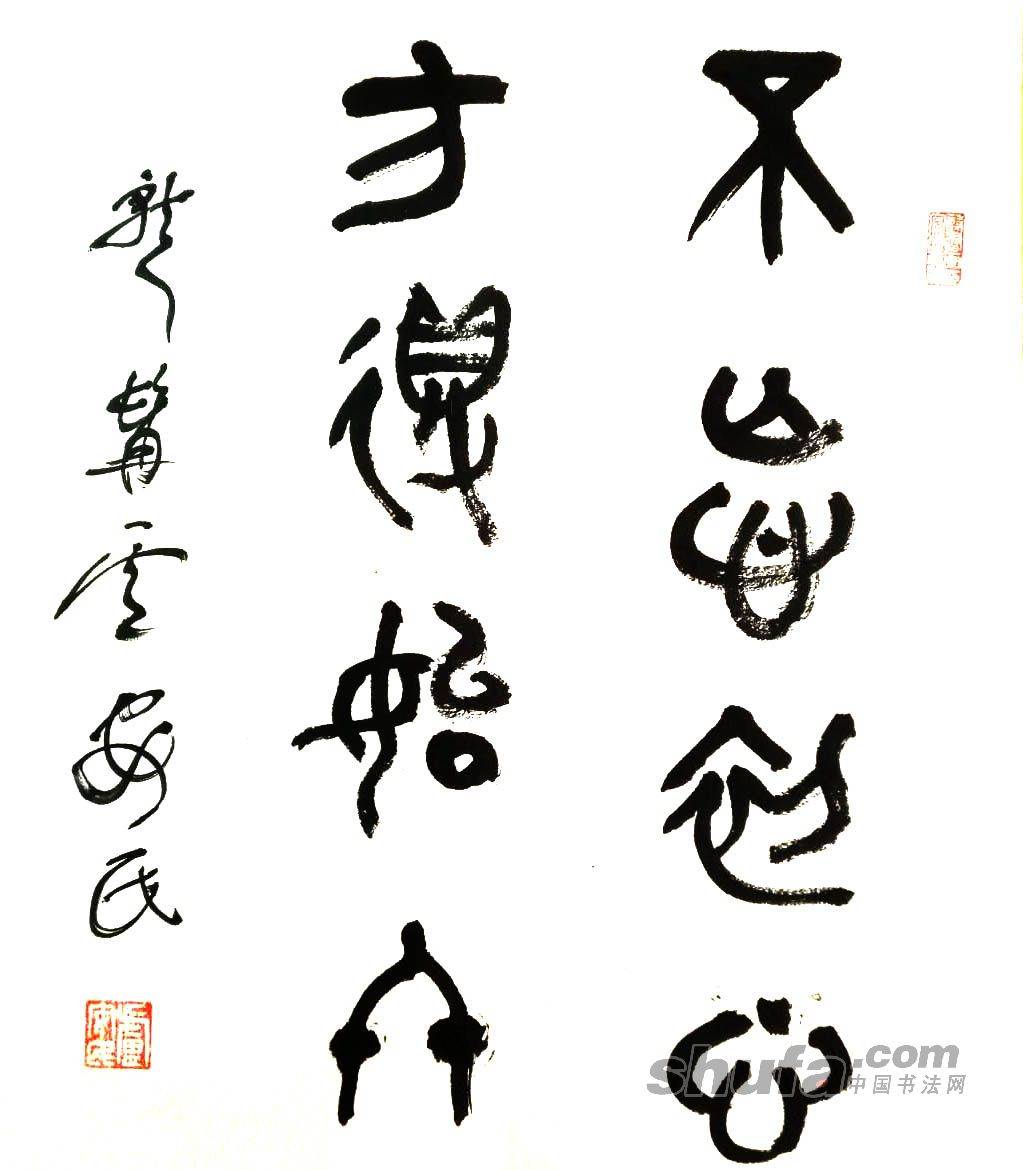 不忘初心
方得始终
云安民
shufa.com
中国书法网